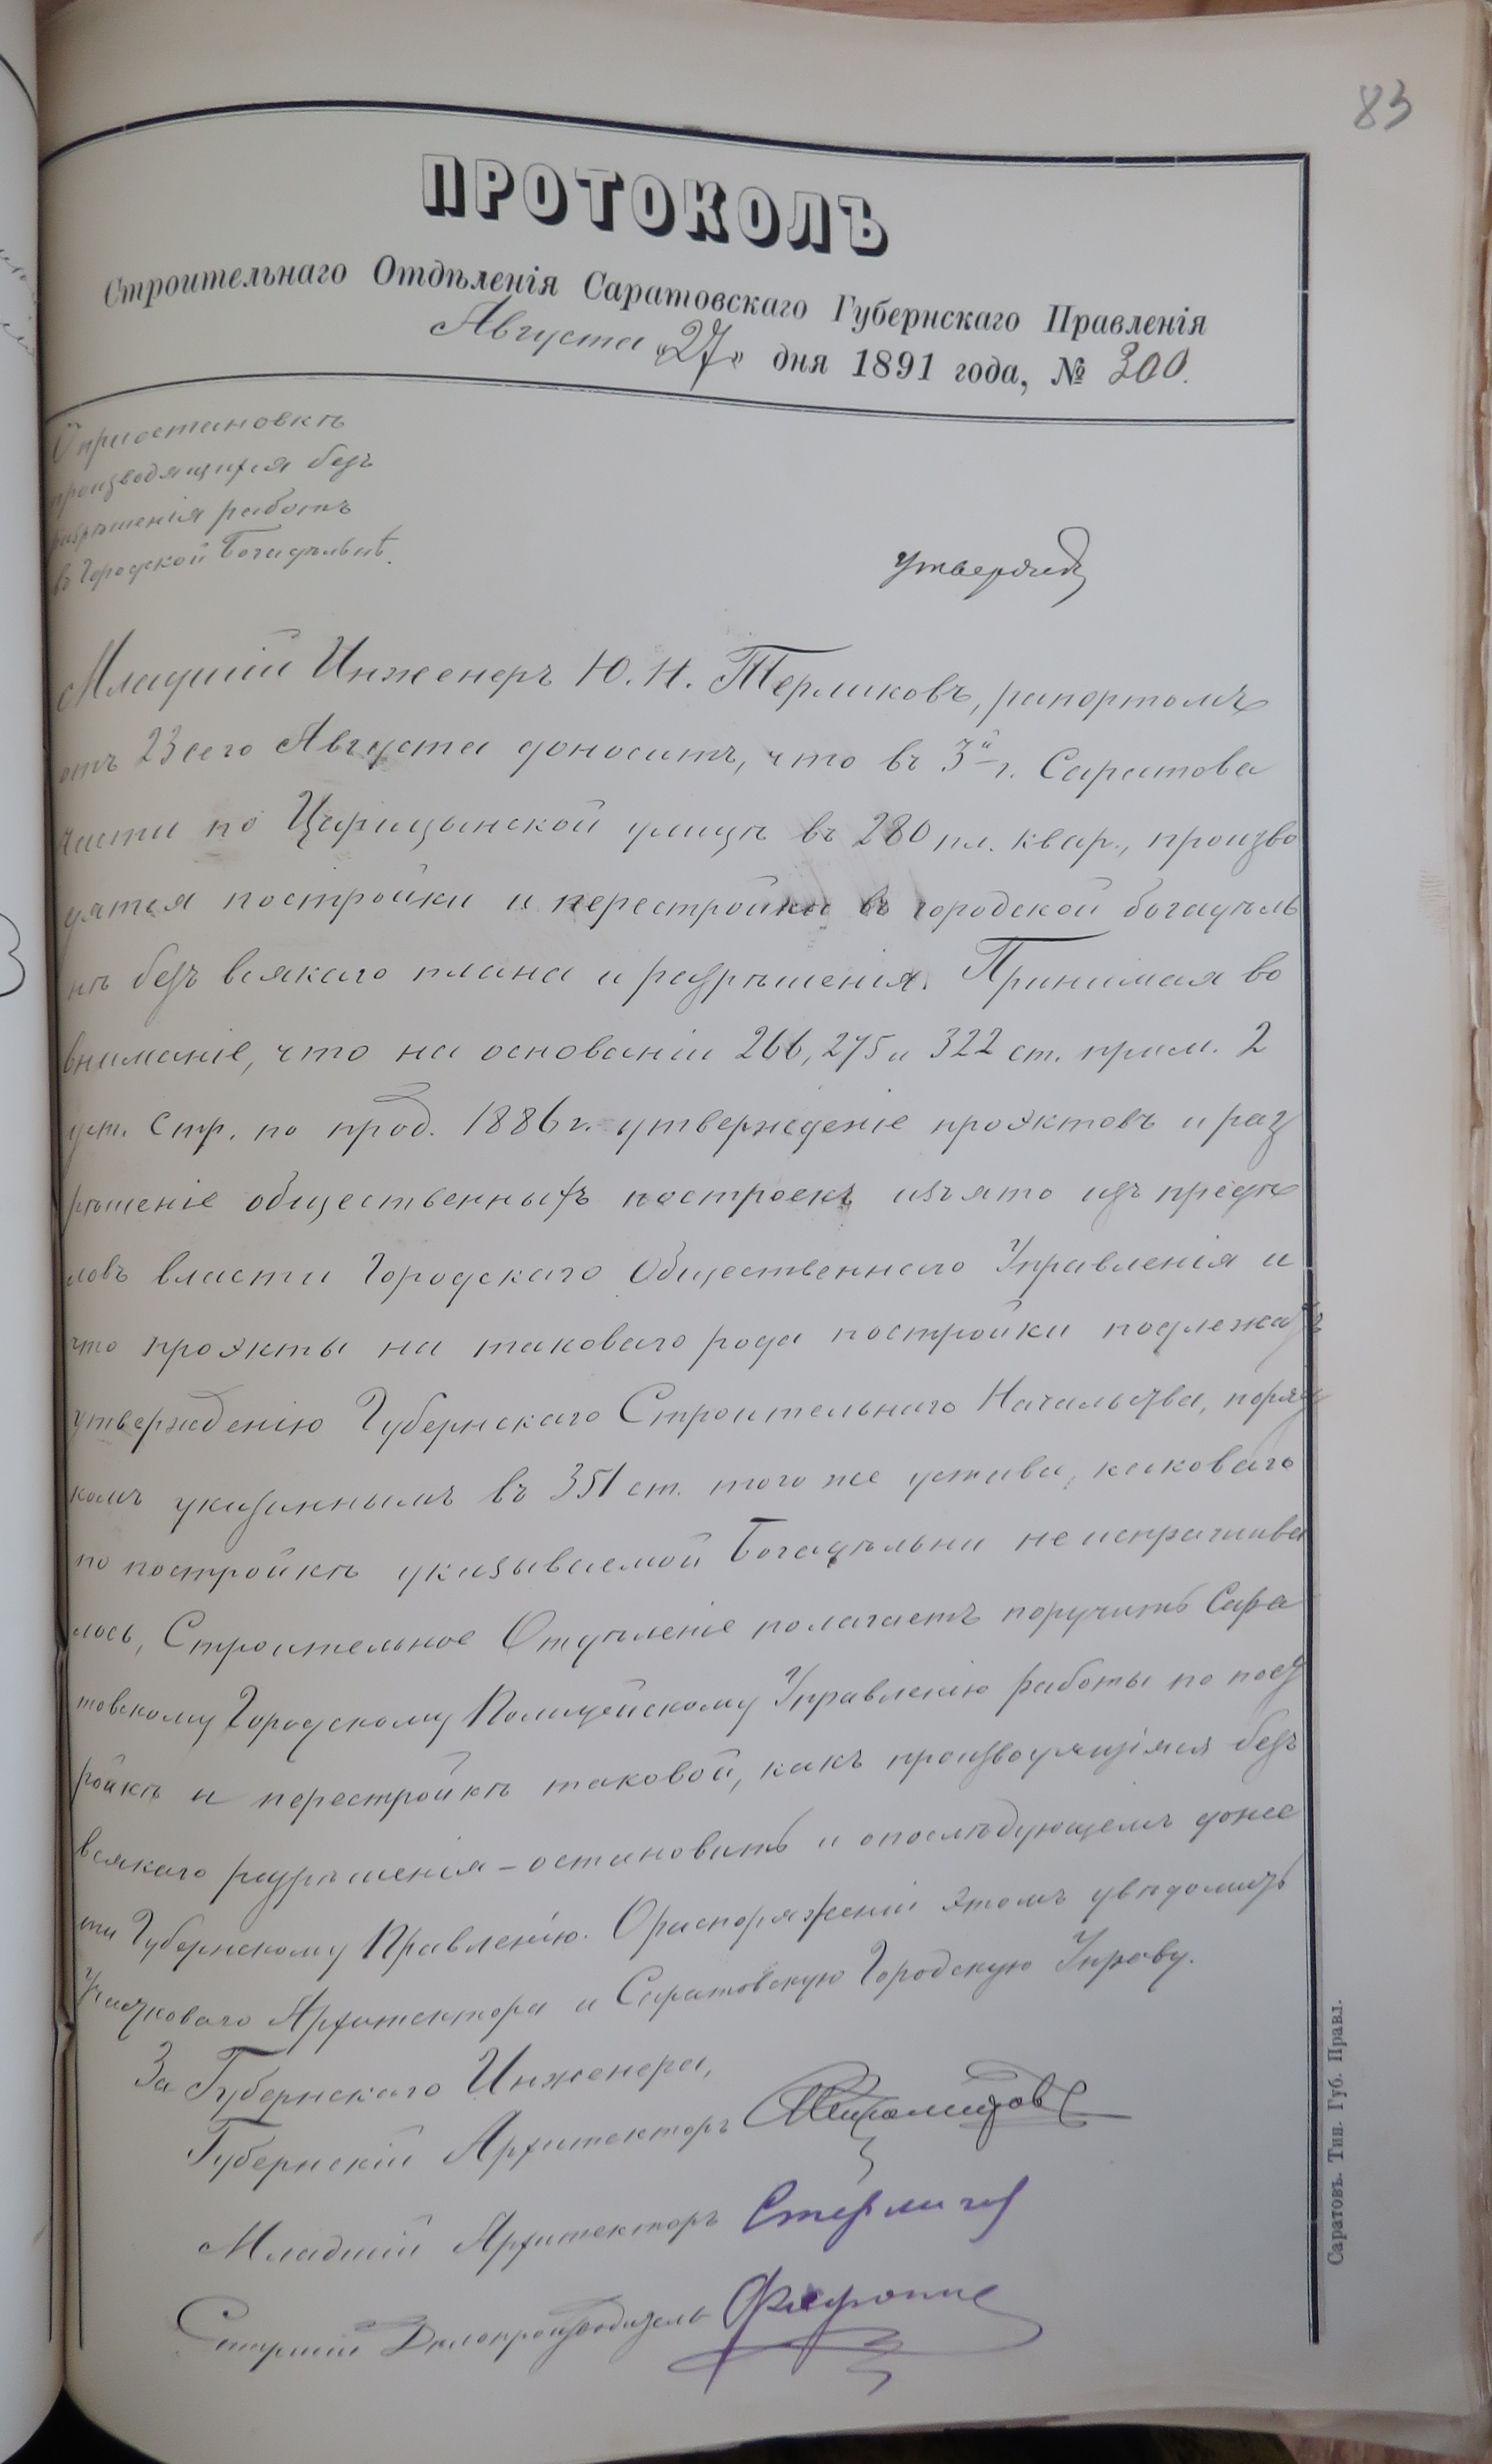 83
ПРОТОКОЛЪ
Строительнаго Отдѣленія Саратовскаго Губернскаго Правленія
Августа „27" дня 1891 года, № 300.
О приостановкѣ
производящихся безъ
разрѣшенія работъ
въ Городской Богадѣльнѣ.
утвержд
Младшій Инженеръ Ю. Н. Терликовъ, рапортомъ
отъ 23 сего Августа доноситъ, что въ 3й г. Саратова
части по Царицынской улицѣ въ 280 пл. квар., произво
дятся постройки и перестройки въ городской богадѣль
нѣ безъ всякаго плана и разрѣшенія. Принимая во
вниманіе, что на основаніи 266, 275 и 322 ст. прим. 2
уст. Стр. по прод. 1886 г. утвержденіе проэктовъ и раз
рѣшеніе общественныхъ построекъ изъято изъ предѣ
ловъ власти Городскаго Общественнаго Управленія и
что проэкты на таковаго рода постройки подлежатъ
утвержденію Губернскаго Строительнаго Начальства, поряд
комъ указаннымъ въ 351 ст. того же устава, каковаго
по постройкѣ указываемой Богадѣльни не испрашива
лось, Строительное Отдѣленіе полагаетъ поручить Сара
товскому Городскому Полицейскому Управленію работы по пост
ройкѣ и перестройкѣ таковой, какъ производящіяся безъ
всякаго разрѣшенія – остановить и о послѣдующемъ доне
сти Губернскому Правленію. О распоряженіи этомъ увѣдомить
Участковаго Архитектора и Саратовскую Городскую Управу.
За Губернскаго Инженера,
Губернскій Архитекторъ
Младшій Архитекторъ
Старшій Дѣлопроизводитель
Саратовъ. Тип. Губ. Правл.